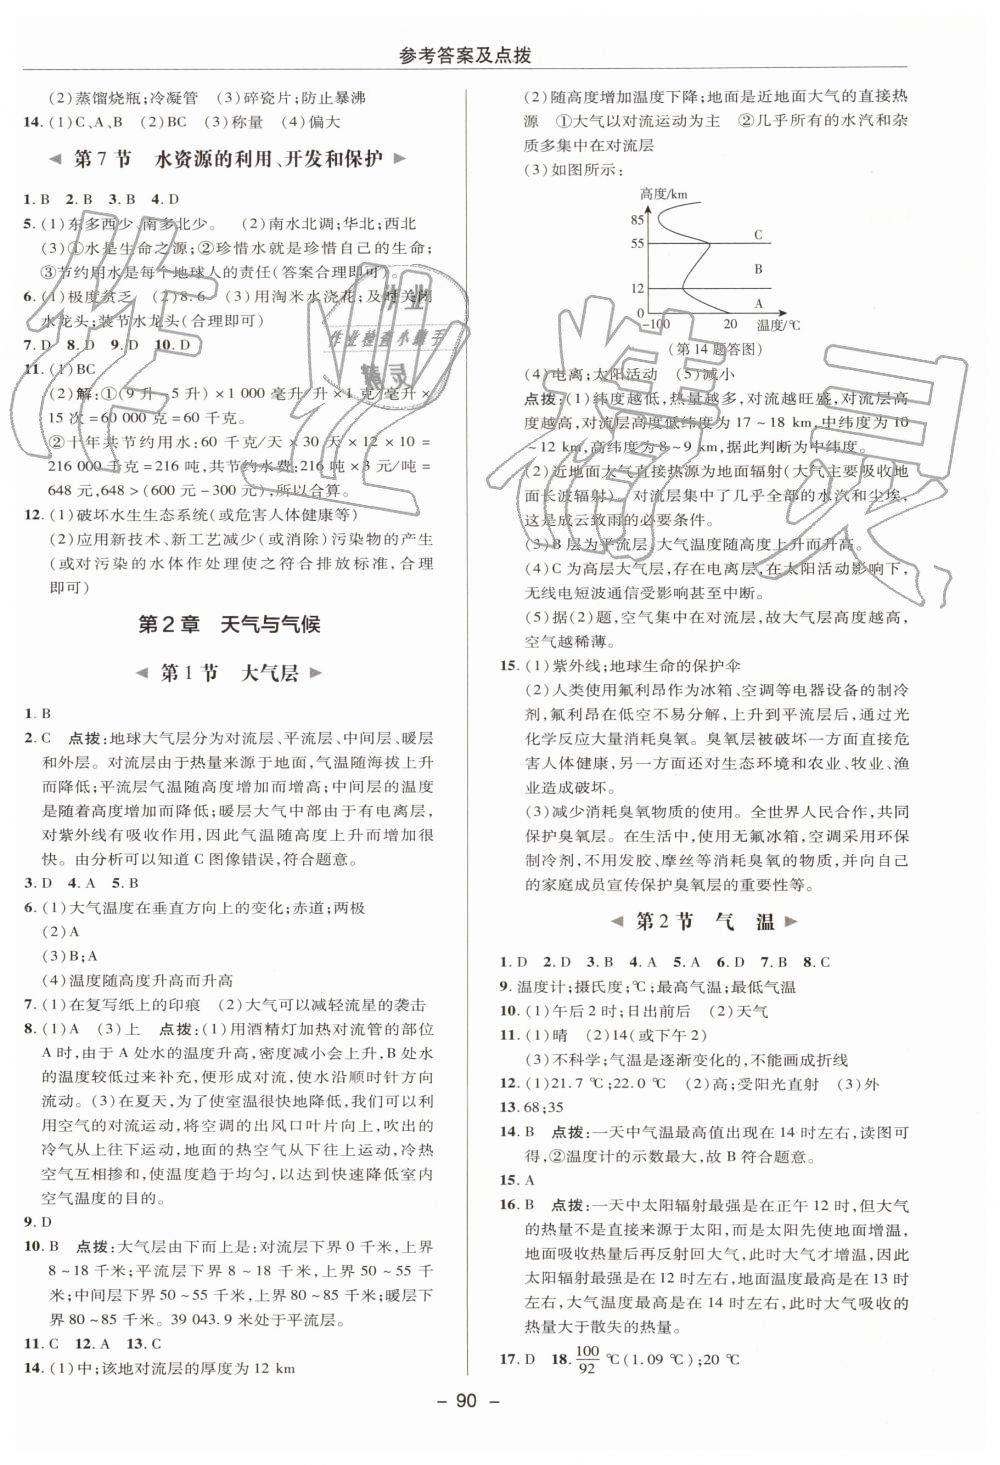 参考答案及点拨
(2)蒸馏烧瓶;冷凝管　(3)碎瓷片;防止暴沸
14.(1)C、A、B　(2)BC　(3)称量　(4)偏大
第7节　水资源的利用、开发和保护
1.B　2.B　3.B　4.D
5.(1)东多西少、南多北少。　(2)南水北调;华北;西北
(3)①水是生命之源;②珍惜水就是珍惜自己的生命;
③节约用水是每个地球人的责任(答案合理即可)。
6.(1)极度贫乏　(2)8.6　(3)用淘米水浇花;及时关闭
水龙头;装节水龙头(合理即可)
7.D　8.D　9.D　10.D
11.(1)BC
(2)解:①(9升－5升)×1 000毫升/升×1克/毫升×
15次=60 000克=60千克。
②十年共节约用水:60千克/天×30天×12×10=
216 000千克=216吨,共节约水费:216吨×3元/吨=
648元,648>(600元－300元),所以合算。
12.(1)破坏水生生态系统(或危害人体健康等)
(2)应用新技术、新工艺减少(或消除)污染物的产生
(或对污染的水体作处理使之符合排放标准,合理
即可)
第2章　天气与气候
第1节　大气层
1.B
2.C　点拨:地球大气层分为对流层、平流层、中间层、暖层
和外层。对流层由于热量来源于地面,气温随海拔上升
而降低;平流层气温随高度增加而增高;中间层的温度
是随着高度增加而降低;暖层大气中部由于有电离层,
对紫外线有吸收作用,因此气温随高度上升而增加很
快。由分析可以知道C图像错误,符合题意。
3.D　4.A　5.B
6.(1)大气温度在垂直方向上的变化;赤道;两极
(2)A
(3)B;A
(4)温度随高度升高而升高
7.(1)在复写纸上的印痕　(2)大气可以减轻流星的袭击
8.(1)A　(3)上　点拨:(1)用酒精灯加热对流管的部位
A时,由于A处水的温度升高,密度减小会上升,B处水
的温度较低过来补充,便形成对流,使水沿顺时针方向
流动。(3)在夏天,为了使室温很快地降低,我们可以利
用空气的对流运动,将空调的出风口叶片向上,吹出的
冷气从上往下运动,地面的热空气从下往上运动,冷热
空气互相掺和,使温度趋于均匀,以达到快速降低室内
空气温度的目的。
9.D
10.B　点拨:大气层由下而上是:对流层下界0千米,上界
8~18千米;平流层下界8~18千米,上界50~55千
米;中间层下界50~55千米,上界80~85千米;暖层下
界80~85千米。39 043.9米处于平流层。
11.C　12.A　13.C
14.(1)中;该地对流层的厚度为12 km
(2)随高度增加温度下降;地面是近地面大气的直接热
源　①大气以对流运动为主　②几乎所有的水汽和杂
质多集中在对流层
(3)如图所示:
高度/km
85
55
12
0
C
B
A
-100
20
温度/℃
(第14题答图)
(4)电离;太阳活动　(5)减小
点拨:(1)纬度越低,热量越多,对流越旺盛,对流层高
度越高,对流层高度低纬度为17~18 km,中纬度为10
~12 km,高纬度为8~9 km,据此判断为中纬度。
(2)近地面大气直接热源为地面辐射(大气主要吸收地
面长波辐射)。对流层集中了几乎全部的水汽和尘埃,
这是成云致雨的必要条件。
(3)B层为平流层,大气温度随高度上升而升高。
(4)C为高层大气层,存在电离层,在太阳活动影响下,
无线电短波通信受影响甚至中断。
(5)据(2)题,空气集中在对流层,故大气层高度越高,
空气越稀薄。
15.(1)紫外线;地球生命的保护伞
(2)人类使用氟利昂作为冰箱、空调等电器设备的制冷
剂,氟利昂在低空不易分解,上升到平流层后,通过光
化学反应大量消耗臭氧。臭氧层被破坏一方面直接危
害人体健康,另一方面还对生态环境和农业、牧业、渔
业造成破坏。
(3)减少消耗臭氧物质的使用。全世界人民合作,共同
保护臭氧层。在生活中,使用无氟冰箱,空调采用环保
制冷剂,不用发胶、摩丝等消耗臭氧的物质,并向自己
的家庭成员宣传保护臭氧层的重要性等。
第2节　气　温
1.D　2.D　3.B　4.A　5.A　6.D　7.B　8.C
9.温度计;摄氏度;℃;最高气温;最低气温
10.(1)午后2时;日出前后　(2)天气
11.(1)晴　(2)14(或下午2)
(3)不科学;气温是逐渐变化的,不能画成折线
12.(1)21.7 ℃;22.0 ℃　(2)高;受阳光直射　(3)外
13.68;35
14.B　点拨:一天中气温最高值出现在14时左右,读图可
得,②温度计的示数最大,故B符合题意。
15.A
16.B　点拨:一天中太阳辐射最强是在正午12时,但大气
的热量不是直接来源于太阳,而是太阳先使地面增温,
地面吸收热量后再反射回大气,此时大气才增温,因此
太阳辐射最强是在12时左右,地面温度最高是在13时
左右,大气温度最高是在14时左右,此时大气吸收的
热量大于散失的热量。
17.D　18.100/92 ℃(1.09 ℃);20 ℃
－ 90 －
作业
作业检查小助手
精灵
作业精灵